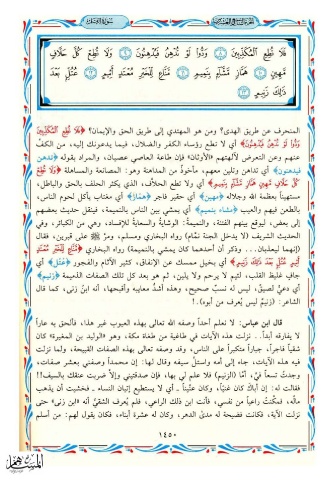 الجزء التاسع والعشرون
سورة القلم
فَلَا تُطِعِ الْمُكَذِّبِينَ ۝٨ وَدُّوا لَوْ تُدْهِنُ فَيُدْهِنُونَ ۝٩ وَلَا تُطِعْ كُلَّ حَلَّافٍ
مَّهِينٍ ۝١٠ هَمَّازٍ مَّشَّاءٍ بِنَمِيمٍ ۝١١ مَّنَّاعٍ لِّلْخَيْرِ مُعْتَدٍ أَثِيمٍ ۝١٢ عُتُلٍّ بَعْدَ
ذَٰلِكَ زَنِيمٍ ۝١٣
المنحرف عن طريق الهدى؟ ومن هو المهتدي إلى طريق الحق والإيمان؟ ﴿فَلَا تُطِعِ الْمُكَذِّبِينَ
وَدُّوا لَوْ تُدْهِنُ فَيُدْهِنُونَ﴾ أي لا تطع رؤساء الكفر والضلال، فيما يدعونك إليه، من الكف
عنهم وعن التعرض لآلهتهم «الأوثان» فإن طاعة العاصي عصيان، والمراد بقوله ﴿تُدْهِنُ
فَيُدْهِنُونَ﴾ أي تلين وتلين معهم، مأخوذ من المداهنة وهو: المصانعة والمساهلة ﴿وَلَا تُطِعْ
كُلَّ حَلَّافٍ مَّهِينٍ هَمَّازٍ مَّشَّاءٍ بِنَمِيمٍ﴾ أي ولا تطع الحلاف، الذي يكثر الحلف بالحق والباطل،
مستهيناً بعظمة الله وجلاله ﴿مهين﴾ أي حقير فاجر ﴿هماز﴾ أي مغتاب يأكل لحوم الناس،
بالطعن فيهم والعيب ﴿مشاء بنميم﴾ أي يمشي بين الناس بالنميمة، فينقل حديث بعضهم
إلى بعض، ليوقع بينهم الفتنة، والنميمة: الوشاية والسعاية للإفساد، وهي من الكبائر، وفي
الحديث الشريف (لا يدخل الجنة نمام) رواه البخاري ومسلم،
(إنهما ليعذبان... وذكر أن أحدهما كان يمشي بالنميمة) رواه البخاري ﴿مَّنَّاعٍ لِّلْخَيْرِ مُعْتَدٍ
أَثِيمٍ عُتُلٍّ بَعْدَ ذَٰلِكَ زَنِيمٍ﴾ أي بخيل ممسك عن الإنفاق، كثير الآثام والفجور ﴿عتل﴾ أي
جاف غليظ القلب، لئيم لا يرحم ولا يلين، ثم هو بعد كل تلك الصفات الذميمة ﴿زنيم﴾
أي دعي لصيق، ليس له نسب صحيح، وهذه أشد معايبه وأقبحها، أنه ابن زنى، كما قال
الشاعر: (زنيم ليس يُعرف من أبوه..)!
قال ابن عباس: لا نعلم أحداً وصفه الله تعالى بهذه العيوب غير هذا، فألحق به عاراً
لا يفارقه أبداً.. نزلت هذه الآيات في طاغية من طغاة مكة، وهو «الوليد بن المغيرة» كان
شقياً فاجراً، جباراً متكبراً على الناس، وقد وصفه تعالى بهذه الصفات القبيحة، ولما نزلت
فيه هذه الآيات، جاء إلى أمه واستل سيفه وقال لها: إن محمداً وصفني بعشر صفات،
وجدت تسعاً فيّ، أما (الزنيم) فلا علم لي بها، فإن صدقتيني وإلا ضربت عنقك بالسيف!!
فقالت له: إن أباك كان غنياً، وكان عنيناً ـ أي لا يستطيع إتيان النساء ـ فخشيت أن يذهب
ماله، فمكنت راعياً من نفسي، فأنت ابن ذلك الراعي، فلم يعرف الشقي أنه «ابن زنى» حتى
نزلت الآية، فكانت فضيحة له مدى الدهر، وكان له عشرة أبناء، فكان يقول لهم: من أسلم
١٤٥٠